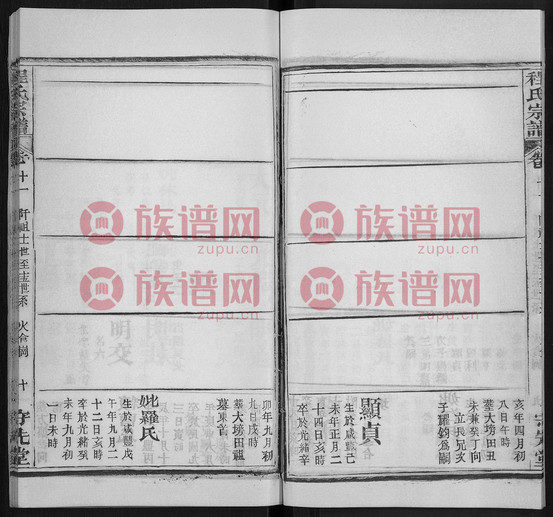 程氏宗譜
亥年四月初
八日午時
葬大塝田丑
未兼癸丁向
立長兄次
子羅鈞爲嗣
顯貞
生於咸豐己
未年正月二
十四日亥時
卒於光緒辛
卯年九月初
九日戌時
葬大塝田龍
墓東首
妣羅氏
生於咸豐戊
午年九月二
十二日亥時
卒於光緒癸
未年九月初
一日未時
程氏宗譜
十一
十
守先堂
族谱网
zupu.cn
族谱网
zupu.cn
族谱网
zupu.cn
族谱网
zupu.cn